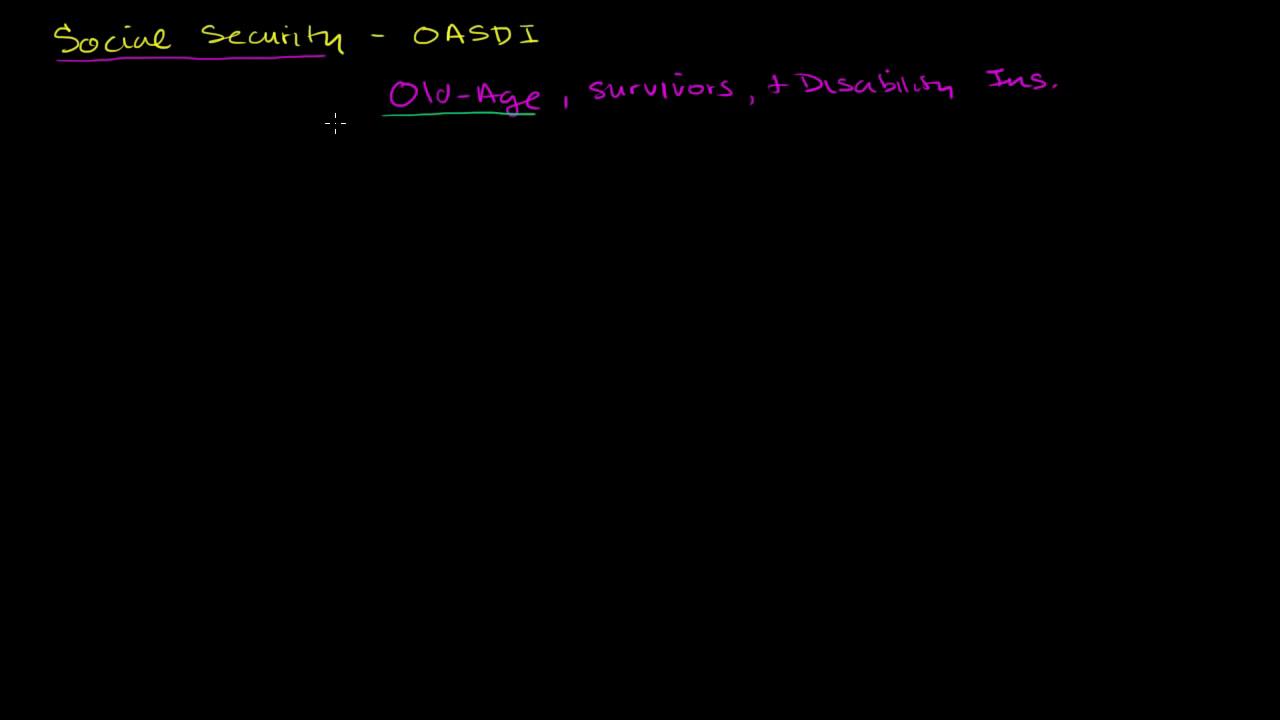 Social Security - OASDI
Old-Age, Survivors, + Disability Ins.